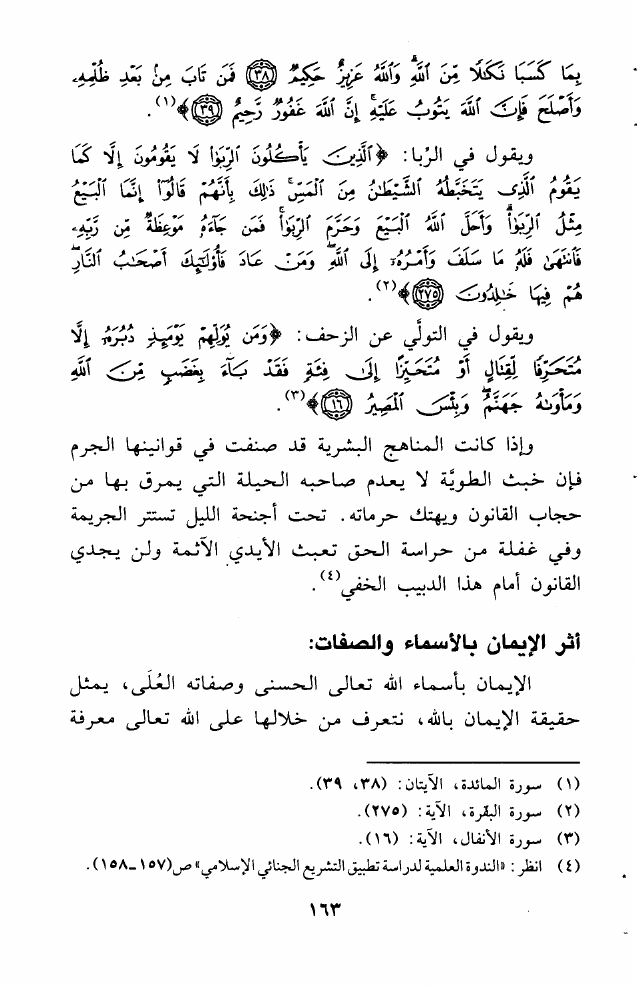 بِمَا كَسَبَا نَكَٰلًا مِّنَ ٱللَّهِ وَٱللَّهُ عَزِيزٌ حَكِيمٌ ﴿٣٨﴾ فَمَن تَابَ مِنۢ بَعْدِ ظُلْمِهِۦ
وَأَصْلَحَ فَإِنَّ ٱللَّهَ يَتُوبُ عَلَيْهِۚ إِنَّ ٱللَّهَ غَفُورٌ رَّحِيمٌ ﴿٣٩﴾﴾(١).
ويقول في الرّبا: ﴿ٱلَّذِينَ يَأْكُلُونَ ٱلرِّبَوٰا۟ لَا يَقُومُونَ إِلَّا كَمَا
يَقُومُ ٱلَّذِى يَتَخَبَّطُهُ ٱلشَّيْطَٰنُ مِنَ ٱلْمَسِّۚ ذَٰلِكَ بِأَنَّهُمْ قَالُوٓا۟ إِنَّمَا ٱلْبَيْعُ
مِثْلُ ٱلرِّبَوٰا۟ۗ وَأَحَلَّ ٱللَّهُ ٱلْبَيْعَ وَحَرَّمَ ٱلرِّبَوٰا۟ۚ فَمَن جَآءَهُۥ مَوْعِظَةٌ مِّن رَّبِّهِۦ
فَٱنتَهَىٰ فَلَهُۥ مَا سَلَفَ وَأَمْرُهُۥٓ إِلَى ٱللَّهِۖ وَمَنْ عَادَ فَأُو۟لَٰٓئِكَ أَصْحَٰبُ ٱلنَّارِۖ
هُمْ فِيهَا خَٰلِدُونَ ﴿٢٧٥﴾﴾(٢).
ويقول في التولّي عن الزحف: ﴿وَمَن يُوَلِّهِمْ يَوْمَئِذٍ دُبُرَهُۥٓ إِلَّا
مُتَحَرِّفًا لِّقِتَالٍ أَوْ مُتَحَيِّزًا إِلَىٰ فِئَةٍ فَقَدْ بَآءَ بِغَضَبٍ مِّنَ ٱللَّهِ
وَمَأْوَىٰهُ جَهَنَّمُۖ وَبِئْسَ ٱلْمَصِيرُ ﴿١٦﴾﴾(٣).
وإذا كانت المناهج البشرية قد صنفت في قوانينها الجرم
فإن خبث الطويَّة لا يعدم صاحبه الحيلة التي يمرق بها من
حجاب القانون ويهتك حرماته. تحت أجنحة الليل تستتر الجريمة
وفي غفلة من حراسة الحق تعبث الأيدي الآثمة ولن يجدي
القانون أمام هذا الدبيب الخفي(٤).
أثر الإيمان بالأسماء والصفات:
الإيمان بأسماء الله تعالى الحسنى وصفاته العُلَى، يمثل
حقيقة الإيمان بالله، نتعرف من خلالها على الله تعالى معرفة
(١) سورة المائدة، الآيتان: (٣٨، ٣٩).
(٢) سورة البقرة، الآية: (٢٧٥).
(٣) سورة الأنفال، الآية: (١٦).
(٤) انظر: «الندوة العلمية لدراسة تطبيق التشريع الجنائي الإسلامي» ص(١٥٧-١٥٨).
١٦٣